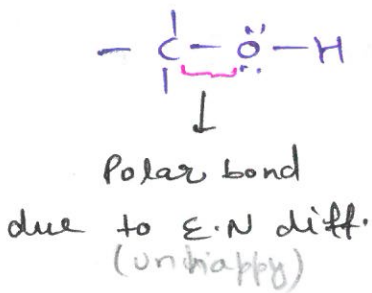 - C - Ö - H
Polar bond
due to E.N diff.
(unhappy)